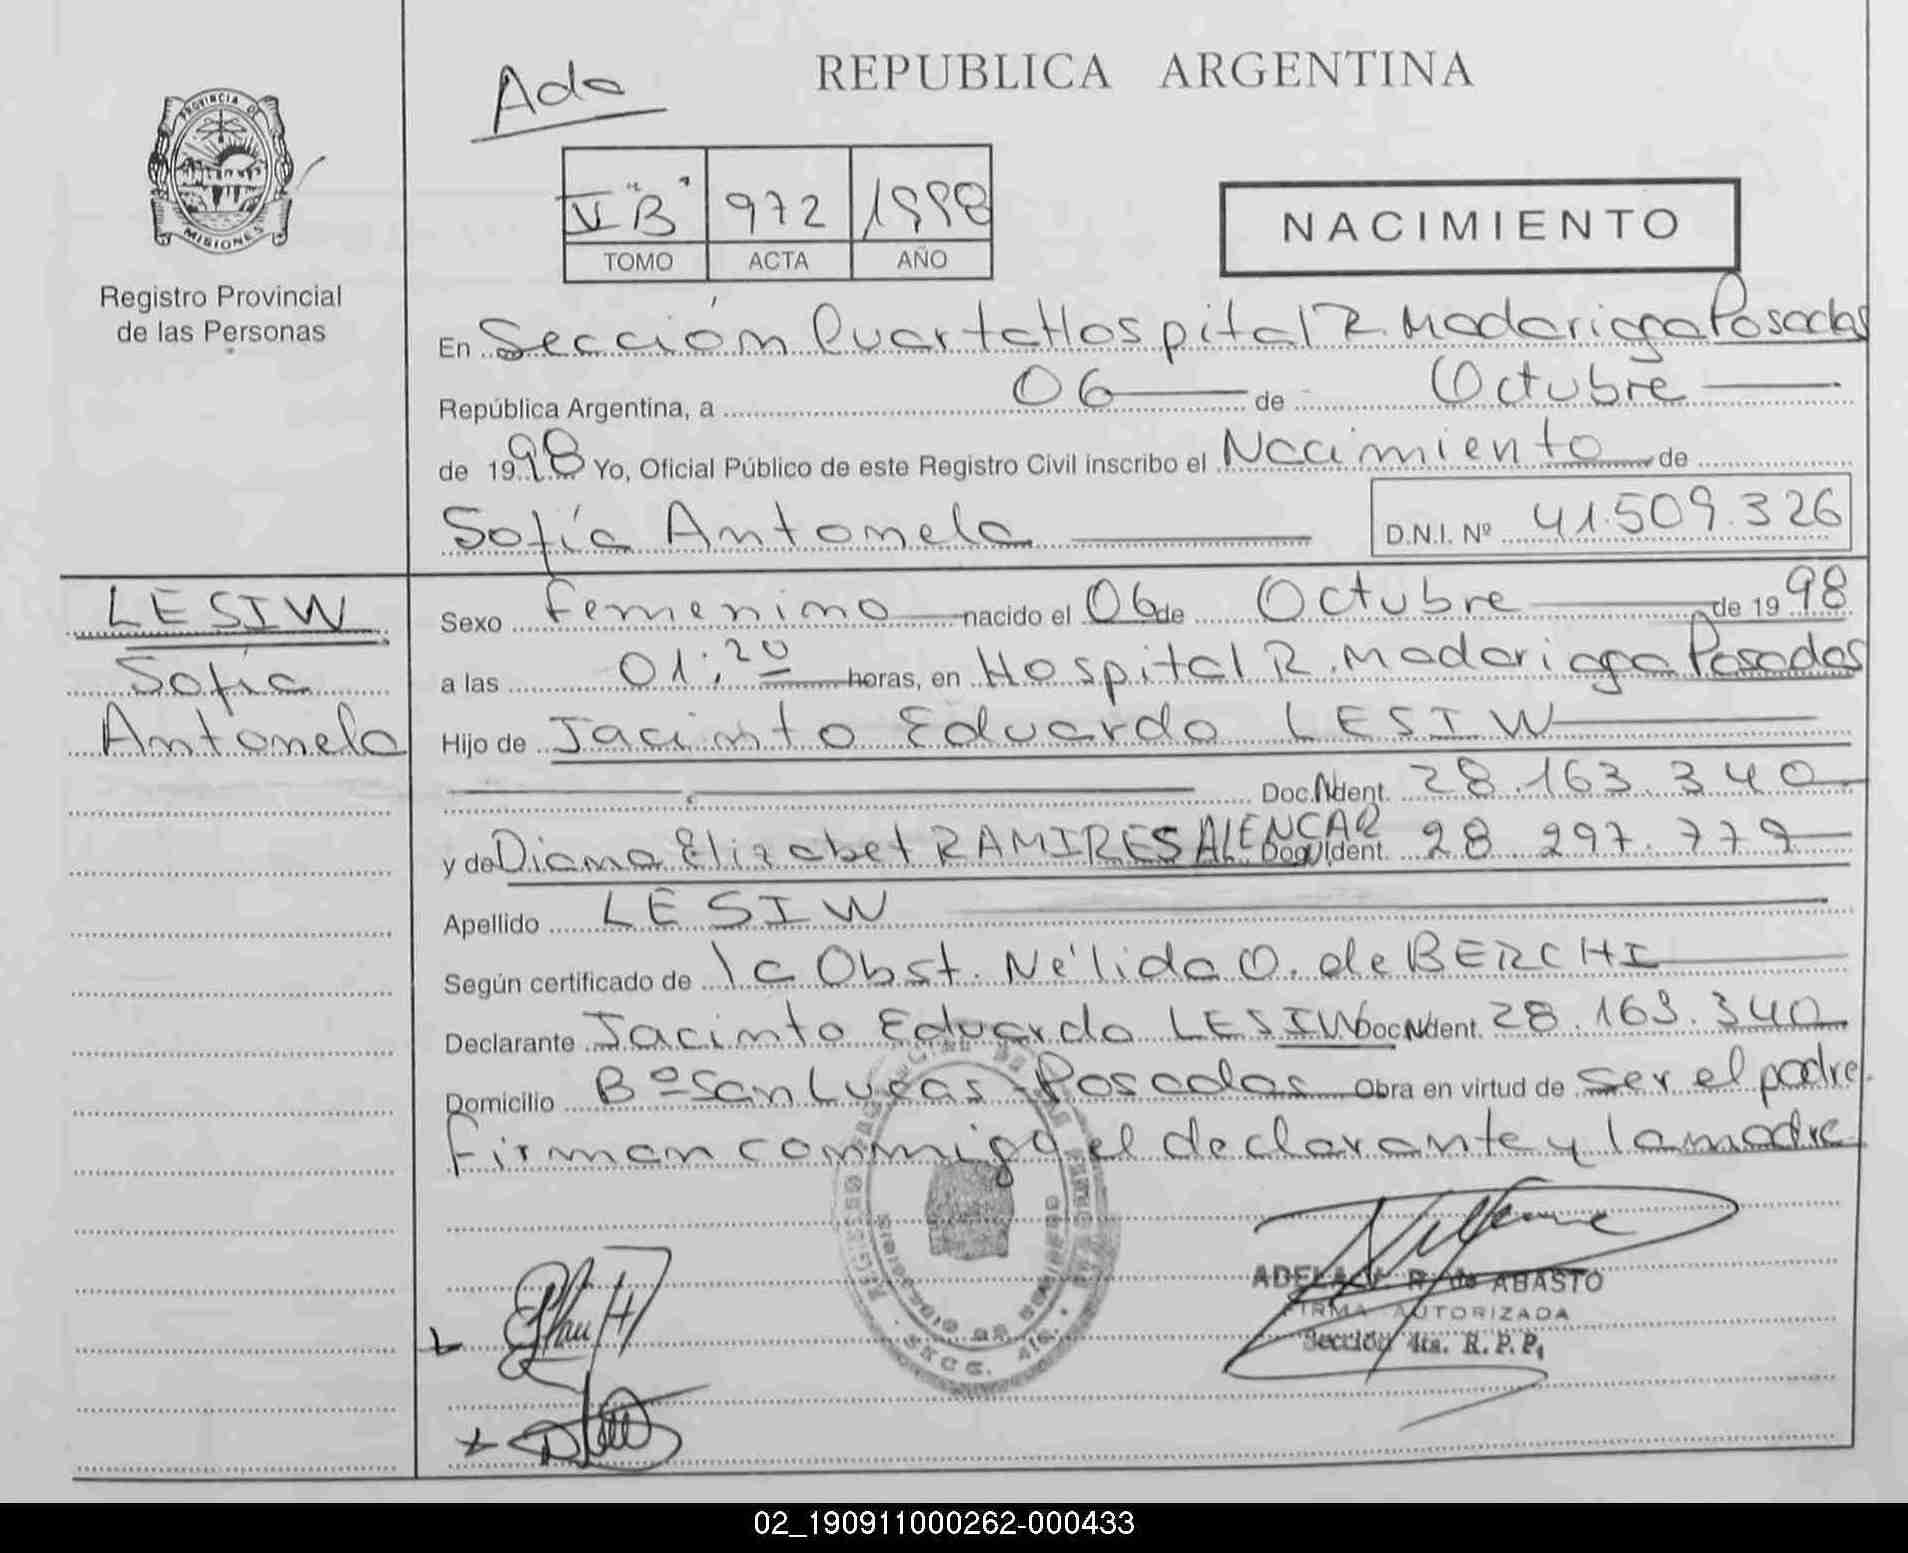 PROVINCIA DE
MISIONES
Registro Provincial
de las Personas
Ada
REPUBLICA ARGENTINA
V "B" 972 1998
TOMO ACTA AÑO
NACIMIENTO
En Sección Cuarta Hospital R. Madariaga Posadas
República Argentina, a 06 de Octubre
de 1998 Yo, Oficial Público de este Registro Civil inscribo el Nacimiento de
Sofía Antonela D.N.I. Nº 41.509.326
LESIW
Sofía
Antonela
Sexo femenino nacido el 06 de Octubre de 1998
a las 01:20 horas, en Hospital R. Madariaga Posadas
Hijo de Jacinto Eduardo LESIW
Doc. Ident. 28.163.340
y de Diana Elizabet RAMIRES ALENCAR Doc. Ident. 28.297.779
Apellido LESIW
Según certificado de la Obst. Nélida O. de BERCHI
Declarante Jacinto Eduardo LESIW Doc. Ident. 28.163.340
Domicilio Bº San Lucas - Posadas Obra en virtud de ser el padre.
firman conmigo el declarante y la madre
ADELA R. de ABASTO
FIRMA AUTORIZADA
Sección 4ta. R. P. P.
SECC. 4ta.
02_190911000262-000433